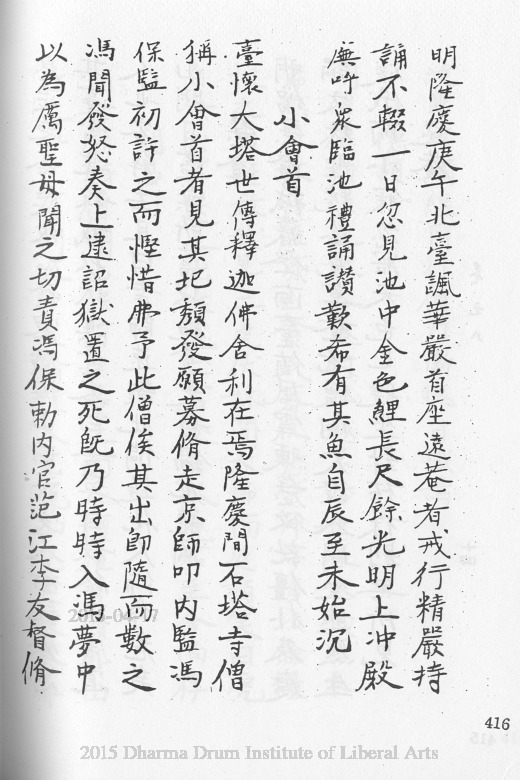 明隆慶庚午北臺諷華嚴首座遠菴者戒行精嚴持
誦不輟一日忽見池中金色鯉長尺餘光明上冲殿
廡呼眾臨池禮誦讃歎希有其魚自辰至未始沉
小會首
臺懷大塔世傳釋迦佛舍利在焉隆慶間石塔寺僧
稱小會首者見其圮頹發願募脩走京師叩內監馮
保監初許之而慳惜弗予此僧俟其出即隨而數之
馮聞發怒奏上逮詔獄置之死既乃時時入馮夢中
以為厲聖母聞之切責馮保勅內官范江李友督脩
416
2015-04-17
2015 Dharma Drum Institute of Liberal Arts